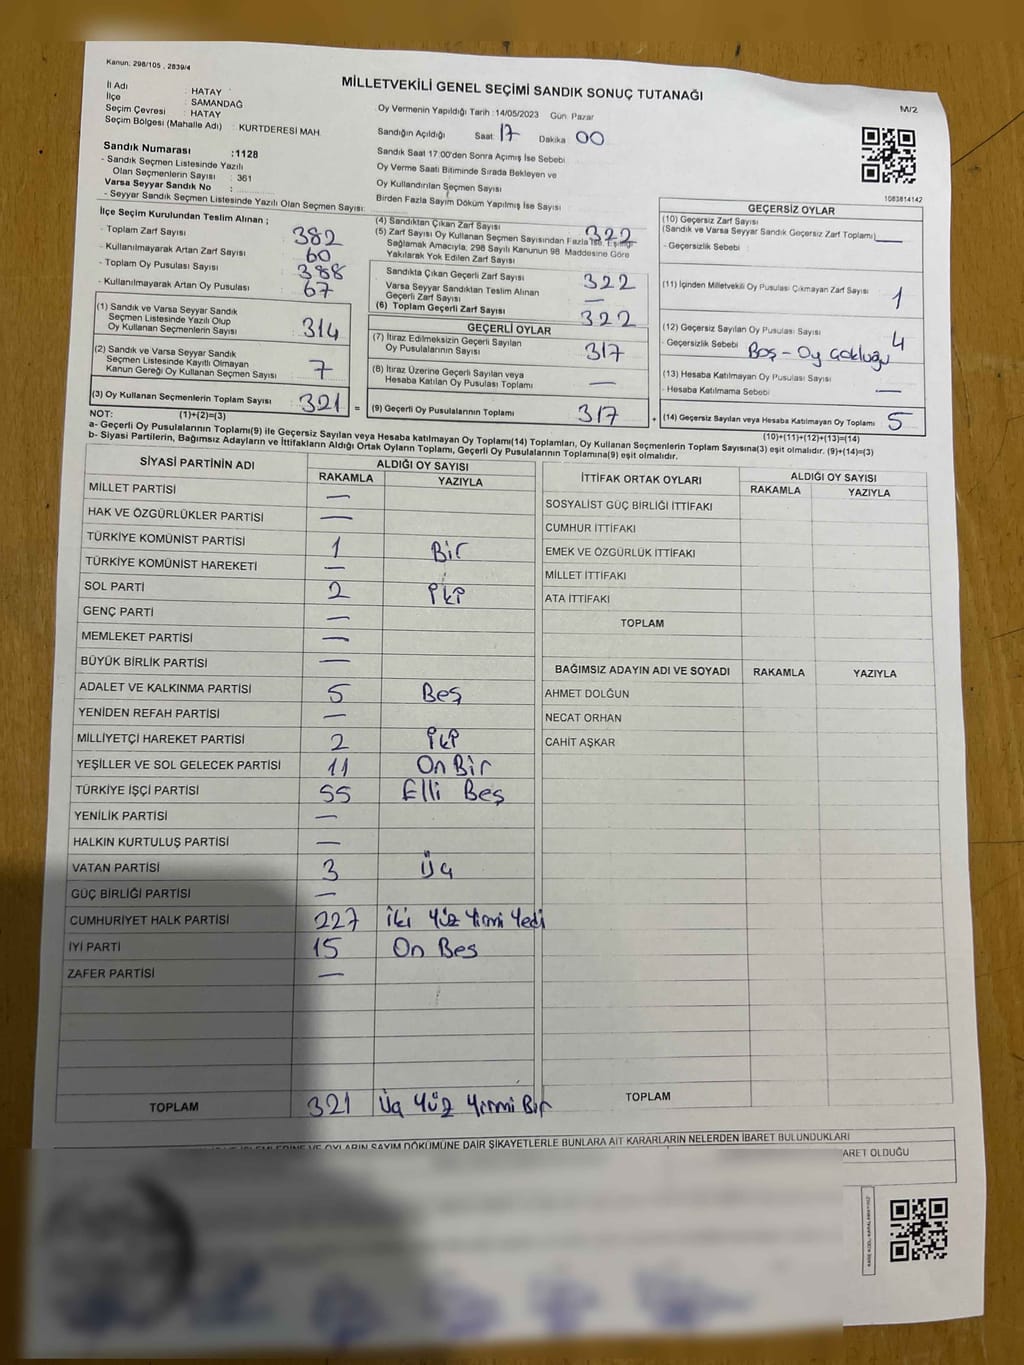 Kanun: 298/105 , 2839/4
MİLLETVEKİLİ GENEL SEÇİMİ SANDIK SONUÇ TUTANAĞI
M/2
İl Adı : HATAY
İlçe : SAMANDAĞ
Seçim Çevresi : HATAY
Seçim Bölgesi (Mahalle Adı) : KURTDERESİ MAH.
Oy Vermenin Yapıldığı Tarih :14/05/2023 Gün: Pazar
Sandığın Açıldığı Saat: 17 Dakika 00
Sandık Saat 17:00'den Sonra Açılmış İse Sebebi
Oy Verme Saati Bitiminde Sırada Bekleyen ve
Oy Kullandırılan Seçmen Sayısı
Birden Fazla Sayım Döküm Yapılmış İse Sayısı
Sandık Numarası :1128
- Sandık Seçmen Listesinde Yazılı
Olan Seçmenlerin Sayısı : 361
Varsa Seyyar Sandık No :
- Seyyar Sandık Seçmen Listesinde Yazılı Olan Seçmen Sayısı:
1083814142
İlçe Seçim Kurulundan Teslim Alınan ;
- Toplam Zarf Sayısı 382
- Kullanılmayarak Artan Zarf Sayısı 60
- Toplam Oy Pusulası Sayısı 388
- Kullanılmayarak Artan Oy Pusulası 67
(1) Sandık ve Varsa Seyyar Sandık
Seçmen Listesinde Yazılı Olup
Oy Kullanan Seçmenlerin Sayısı 314
(2) Sandık ve Varsa Seyyar Sandık
Seçmen Listesinde Kayıtlı Olmayan
Kanun Gereği Oy Kullanan Seçmen Sayısı 7
(3) Oy Kullanan Seçmenlerin Toplam Sayısı 321 =
(4) Sandıktan Çıkan Zarf Sayısı 322
(5) Zarf Sayısı Oy Kullanan Seçmen Sayısından Fazla İse, Eşitliği
Sağlamak Amacıyla, 298 Sayılı Kanunun 98. Maddesine Göre
Yakılarak Yok Edilen Zarf Sayısı
Sandıkta Çıkan Geçerli Zarf Sayısı 322
Varsa Seyyar Sandıktan Teslim Alınan
Geçerli Zarf Sayısı —
(6) Toplam Geçerli Zarf Sayısı 322
GEÇERLİ OYLAR
(7) İtiraz Edilmeksizin Geçerli Sayılan
Oy Pusulalarının Sayısı 317
(8) İtiraz Üzerine Geçerli Sayılan veya
Hesaba Katılan Oy Pusulası Toplamı —
(9) Geçerli Oy Pusulalarının Toplamı 317 +
GEÇERSİZ OYLAR
(10) Geçersiz Zarf Sayısı
(Sandık ve Varsa Seyyar Sandık Geçersiz Zarf Toplamı) —
- Geçersizlik Sebebi :
(11) İçinden Milletvekili Oy Pusulası Çıkmayan Zarf Sayısı 1
(12) Geçersiz Sayılan Oy Pusulası Sayısı 4
- Geçersizlik Sebebi : Boş - Oy Çokluğu
(13) Hesaba Katılmayan Oy Pusulası Sayısı
- Hesaba Katılmama Sebebi : —
(14) Geçersiz Sayılan veya Hesaba Katılmayan Oy Toplamı 5
NOT: (1)+(2)=(3)
(10)+(11)+(12)+(13)=(14)
a- Geçerli Oy Pusulalarının Toplamı(9) ile Geçersiz Sayılan veya Hesaba katılmayan Oy Toplamı(14) Toplamları, Oy Kullanan Seçmenlerin Toplam Sayısına(3) eşit olmalıdır. (9)+(14)=(3)
b- Siyasi Partilerin, Bağımsız Adayların ve İttifakların Aldığı Ortak Oyların Toplamı, Geçerli Oy Pusulalarının Toplamına(9) eşit olmalıdır.
SİYASİ PARTİNİN ADI ALDIĞI OY SAYISI
RAKAMLA YAZIYLA
MİLLET PARTİSİ —
HAK VE ÖZGÜRLÜKLER PARTİSİ —
TÜRKİYE KOMÜNİST PARTİSİ 1 Bir
TÜRKİYE KOMÜNİST HAREKETİ —
SOL PARTİ 2 İki
GENÇ PARTİ —
MEMLEKET PARTİSİ —
BÜYÜK BİRLİK PARTİSİ —
ADALET VE KALKINMA PARTİSİ 5 Beş
YENİDEN REFAH PARTİSİ —
MİLLİYETÇİ HAREKET PARTİSİ 2 İki
YEŞİLLER VE SOL GELECEK PARTİSİ 11 On Bir
TÜRKİYE İŞÇİ PARTİSİ 55 Elli Beş
YENİLİK PARTİSİ —
HALKIN KURTULUŞ PARTİSİ —
VATAN PARTİSİ 3 Üç
GÜÇ BİRLİĞİ PARTİSİ —
CUMHURİYET HALK PARTİSİ 227 İki Yüz Yirmi Yedi
İYİ PARTİ 15 On Beş
ZAFER PARTİSİ —
TOPLAM 321 Üç Yüz Yirmi Bir
İTTİFAK ORTAK OYLARI ALDIĞI OY SAYISI
RAKAMLA YAZIYLA
SOSYALİST GÜÇ BİRLİĞİ İTTİFAKI
CUMHUR İTTİFAKI
EMEK VE ÖZGÜRLÜK İTTİFAKI
MİLLET İTTİFAKI
ATA İTTİFAKI
TOPLAM
BAĞIMSIZ ADAYIN ADI VE SOYADI RAKAMLA YAZIYLA
AHMET DOLĞUN
NECAT ORHAN
CAHİT AŞKAR
TOPLAM
OYLARIN SAYIM DÖKÜMÜNE DAİR ŞİKAYETLERLE BUNLARA AİT KARARLARIN NELERDEN İBARET BULUNDUKLARI
OLDUĞU